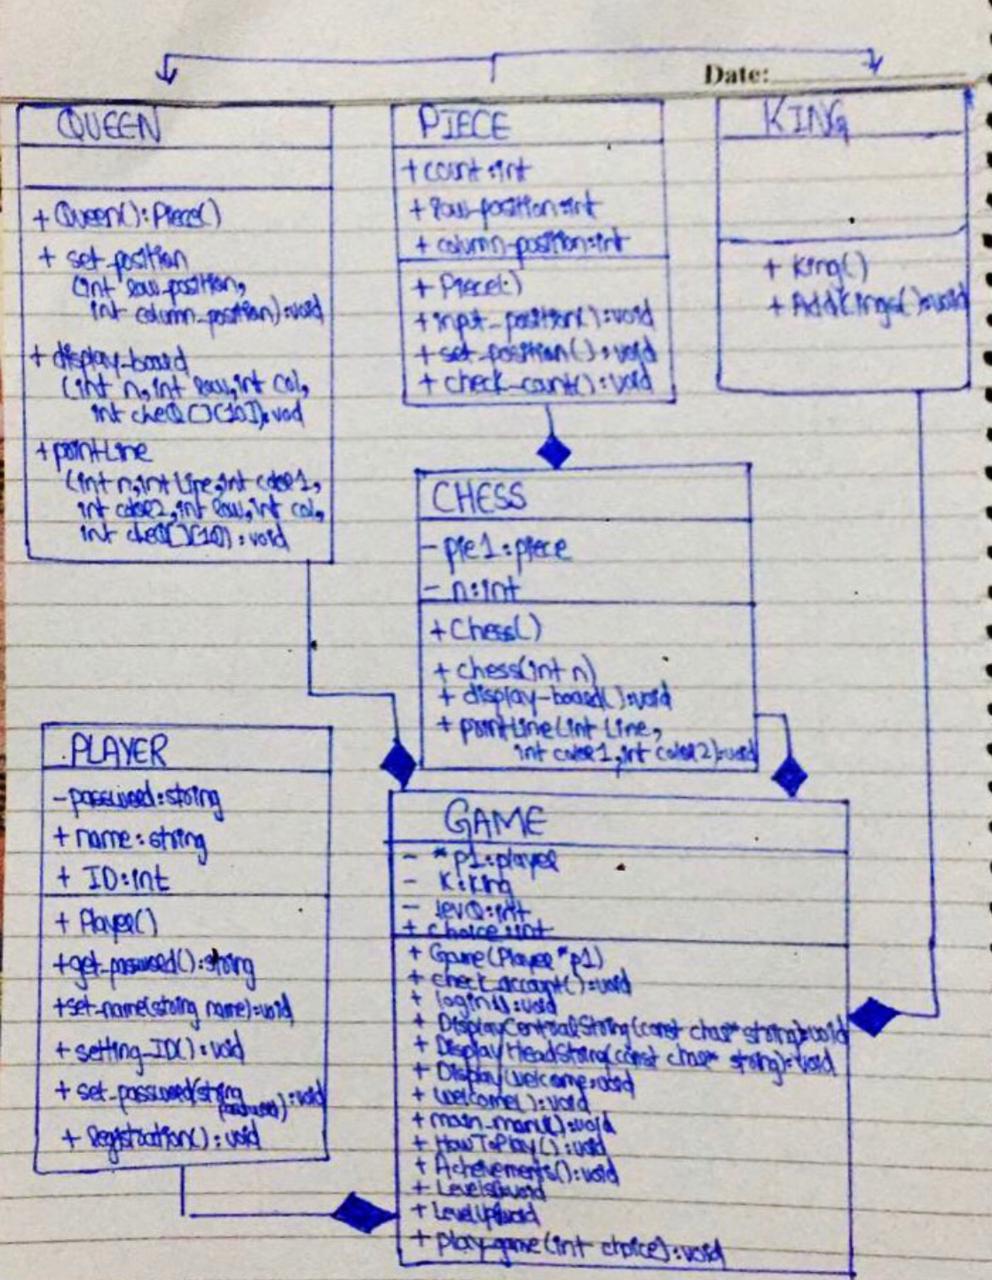 Date:
QUEEN
+ Queen(): Piece()
+ set_position
(int row_position,
int column_position):void
+ display_board
(int n, int row, int col,
int cheQ[][10]):void
+ printLine
(int n, int Line, int color1,
int color2, int row, int col,
int cheQ[][10]) : void
PIECE
+ count : int
+ row_position:int
+ column_position:int
+ Piece()
+ input_position() : void
+ set_position() : void
+ check_count() : void
KING
+ King()
+ AddKings():void
CHESS
- pie1 : piece
- n : int
+ Chess()
+ chess(int n)
+ display-board():void
+ printLine(int Line,
int color1, int color2):void
.PLAYER
- password:string
+ name : string
+ ID:int
+ Player()
+get_password():string
+set_name(string name):void
+ setting_ID() : void
+ set_password(string
password) : void
+ Registration() : void
GAME
- *p1:player
- K:King
- levQ:int
+ choice:int
+ Game(Player *p1)
+ check_account():void
+ login():void
+ DisplayCentralString(const char* string):void
+ DisplayHeadString(const char* string):void
+ DisplayWelcome:void
+ welcome() : void
+ main_manu():void
+ HowToPlay():void
+ Achevements():void
+ Levels():void
+ LevelUp():void
+ play_game(int choice) : void